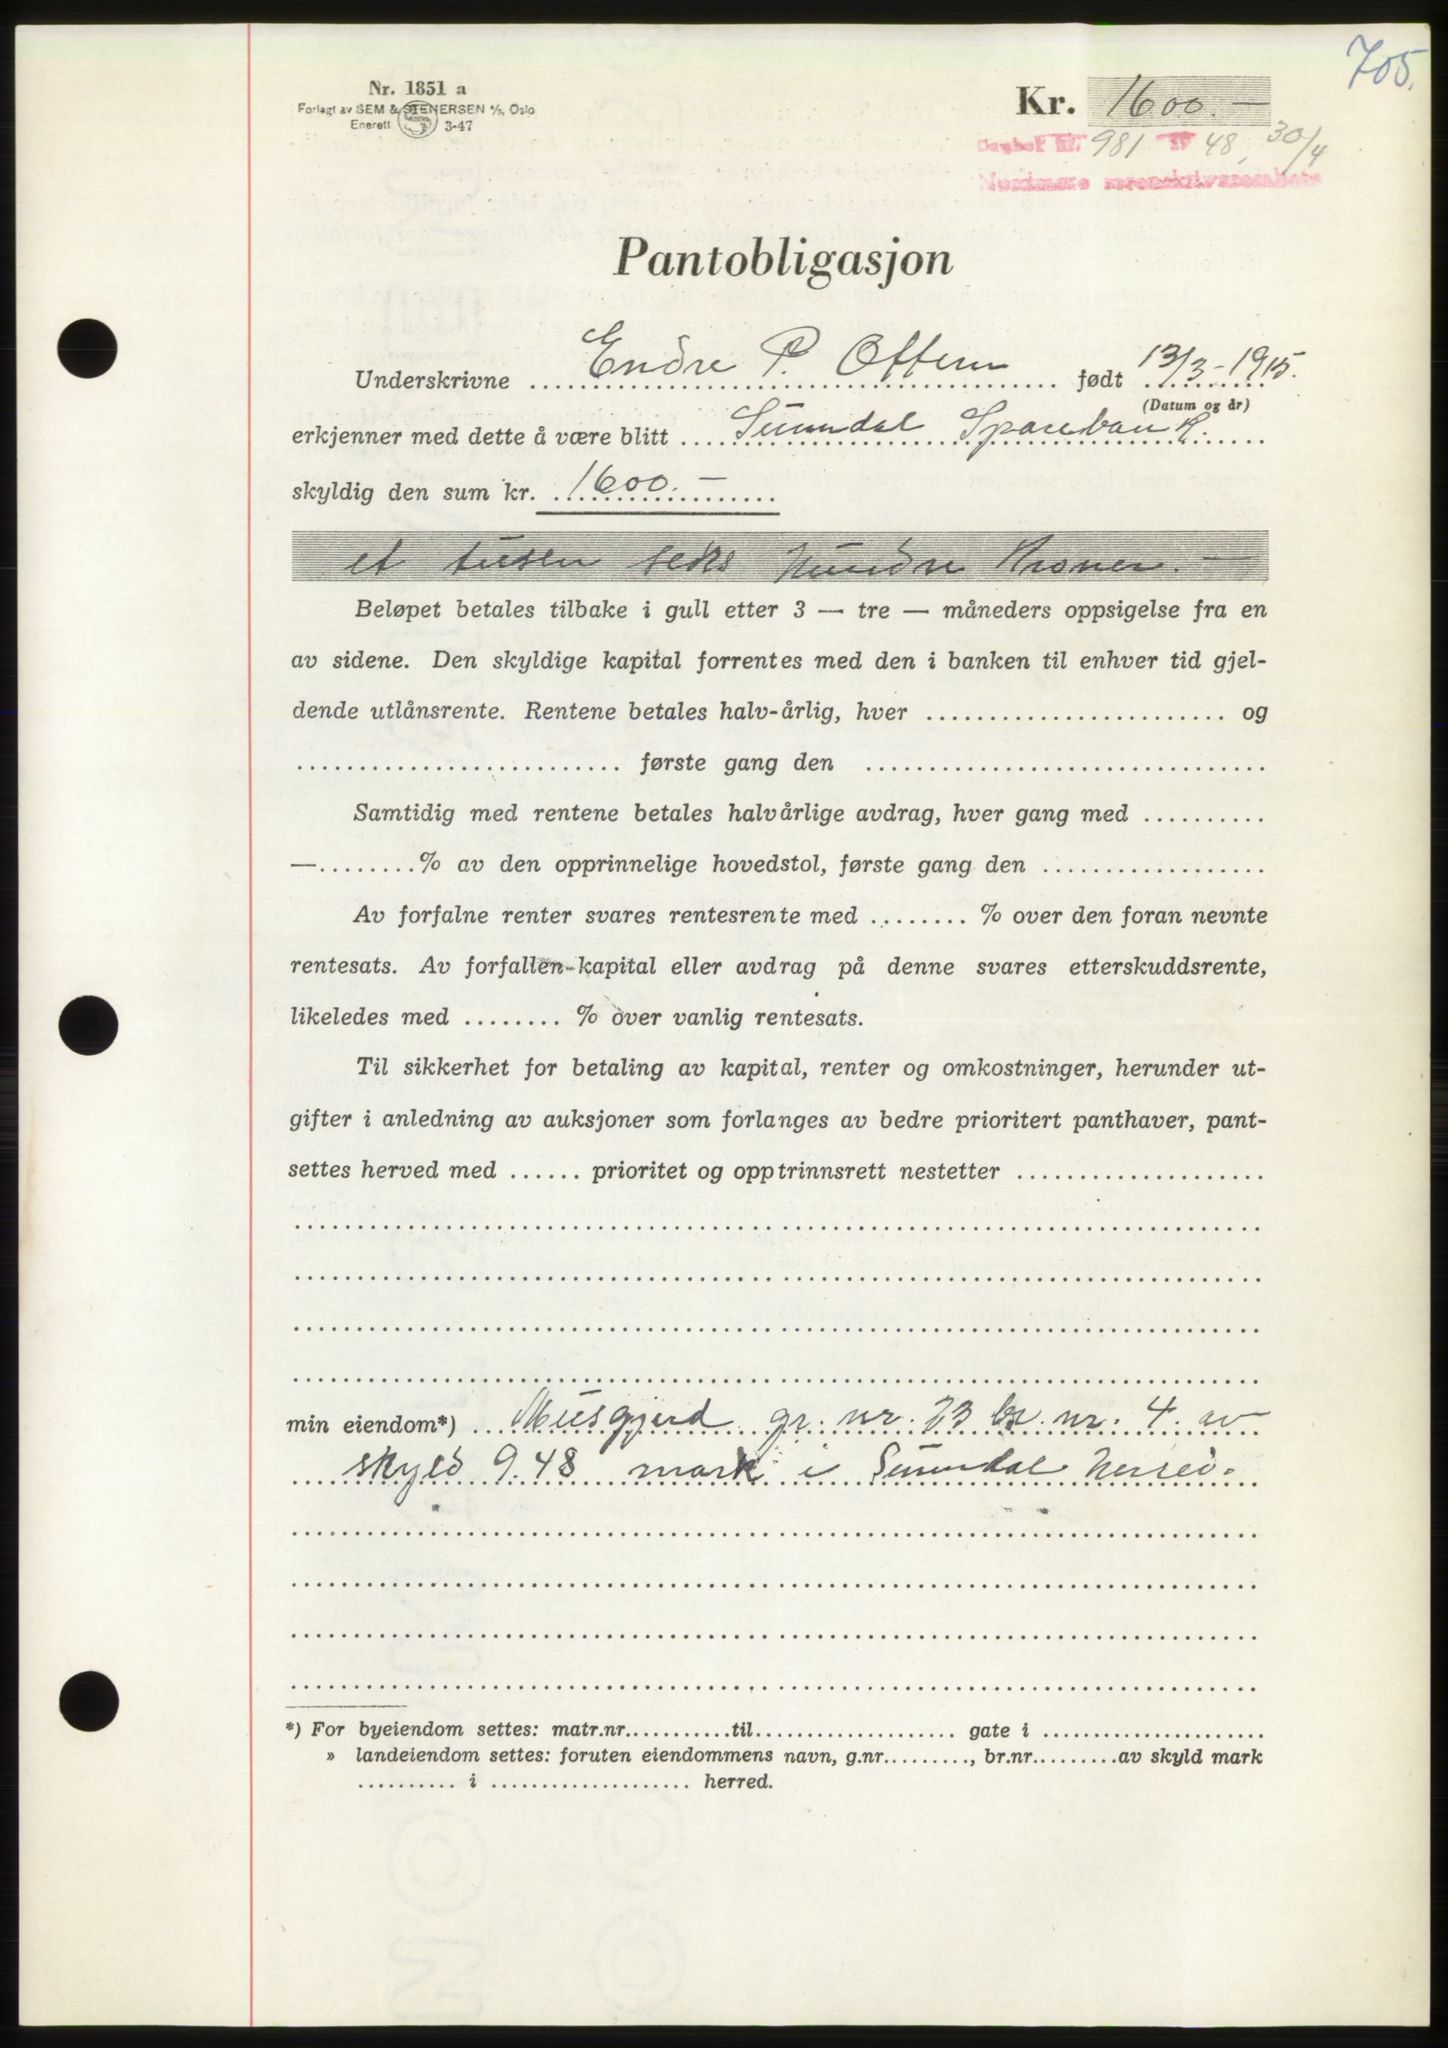 705.
Nr. 1851 a
Forlagt av SEM & STENERSEN A/S, Oslo
Enerett 3-47
Kr. 1600.—
Dagbok nr. 981 19 48, 30/4
Nordmøre sorenskriverembete
Pantobligasjon
Underskrivne Endre P. Ottem født 13/3-1915.
(Datum og år)
erkjenner med dette å være blitt Sunndal Sparebank.
skyldig den sum kr. 1600.—
et tusen seks hundre kroner.—
Beløpet betales tilbake i gull etter 3 — tre — måneders oppsigelse fra en
av sidene. Den skyldige kapital forrentes med den i banken til enhver tid gjel-
dende utlånsrente. Rentene betales halv-årlig, hver ........................ og
.......................... første gang den ................................
Samtidig med rentene betales halvårlige avdrag, hver gang med ..........
—........% av den opprinnelige hovedstol, første gang den ..................
Av forfalne renter svares rentesrente med ........ % over den foran nevnte
rentesats. Av forfallen kapital eller avdrag på denne svares etterskuddsrente,
likeledes med ........ % over vanlig rentesats.
Til sikkerhet for betaling av kapital, renter og omkostninger, herunder ut-
gifter i anledning av auksjoner som forlanges av bedre prioritert panthaver, pant-
settes herved med ...... prioritet og opptrinnsrett nestetter ....................
min eiendom*) Musgjerd gr. nr. 73 br. nr. 4. av
skyld 9.48 mark i Sunndal herred.
*) For byeiendom settes: matr.nr...........til.................... gate i ......................
» landeiendom settes: foruten eiendommens navn, g.nr........., br.nr.........av skyld mark
.......... i .................... herred.